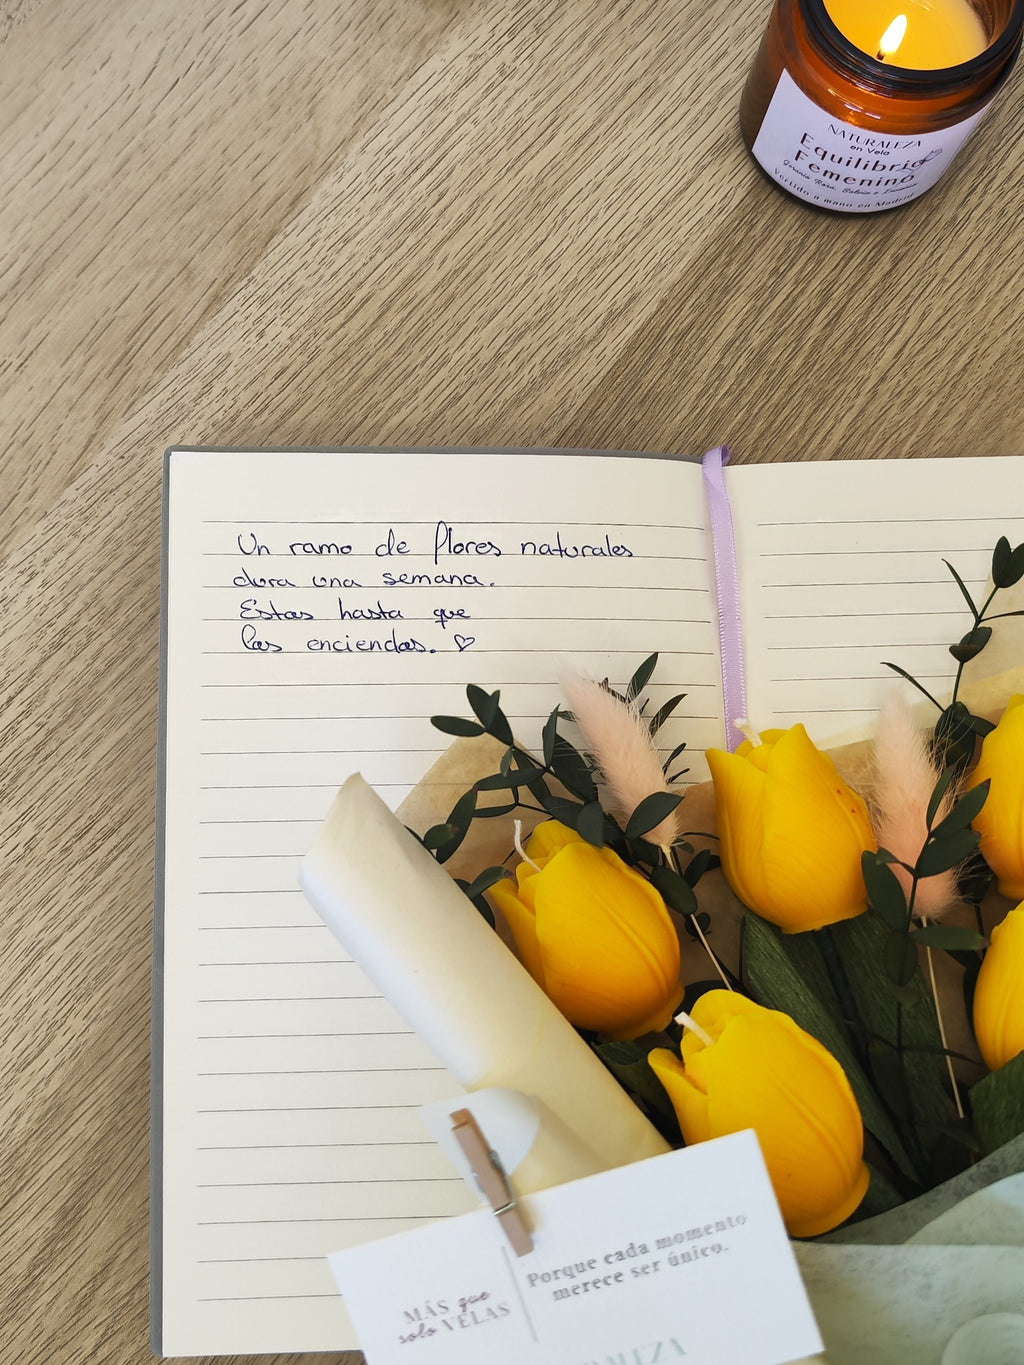 NATURALEZA
en Vela
Equilibrio
Femenino
Vertido a mano en Madrid
Un ramo de flores naturales
dura una semana.
Estas hasta que
las enciendas. ♡
MÁS que
solo VELAS
Porque cada momento
merece ser único.